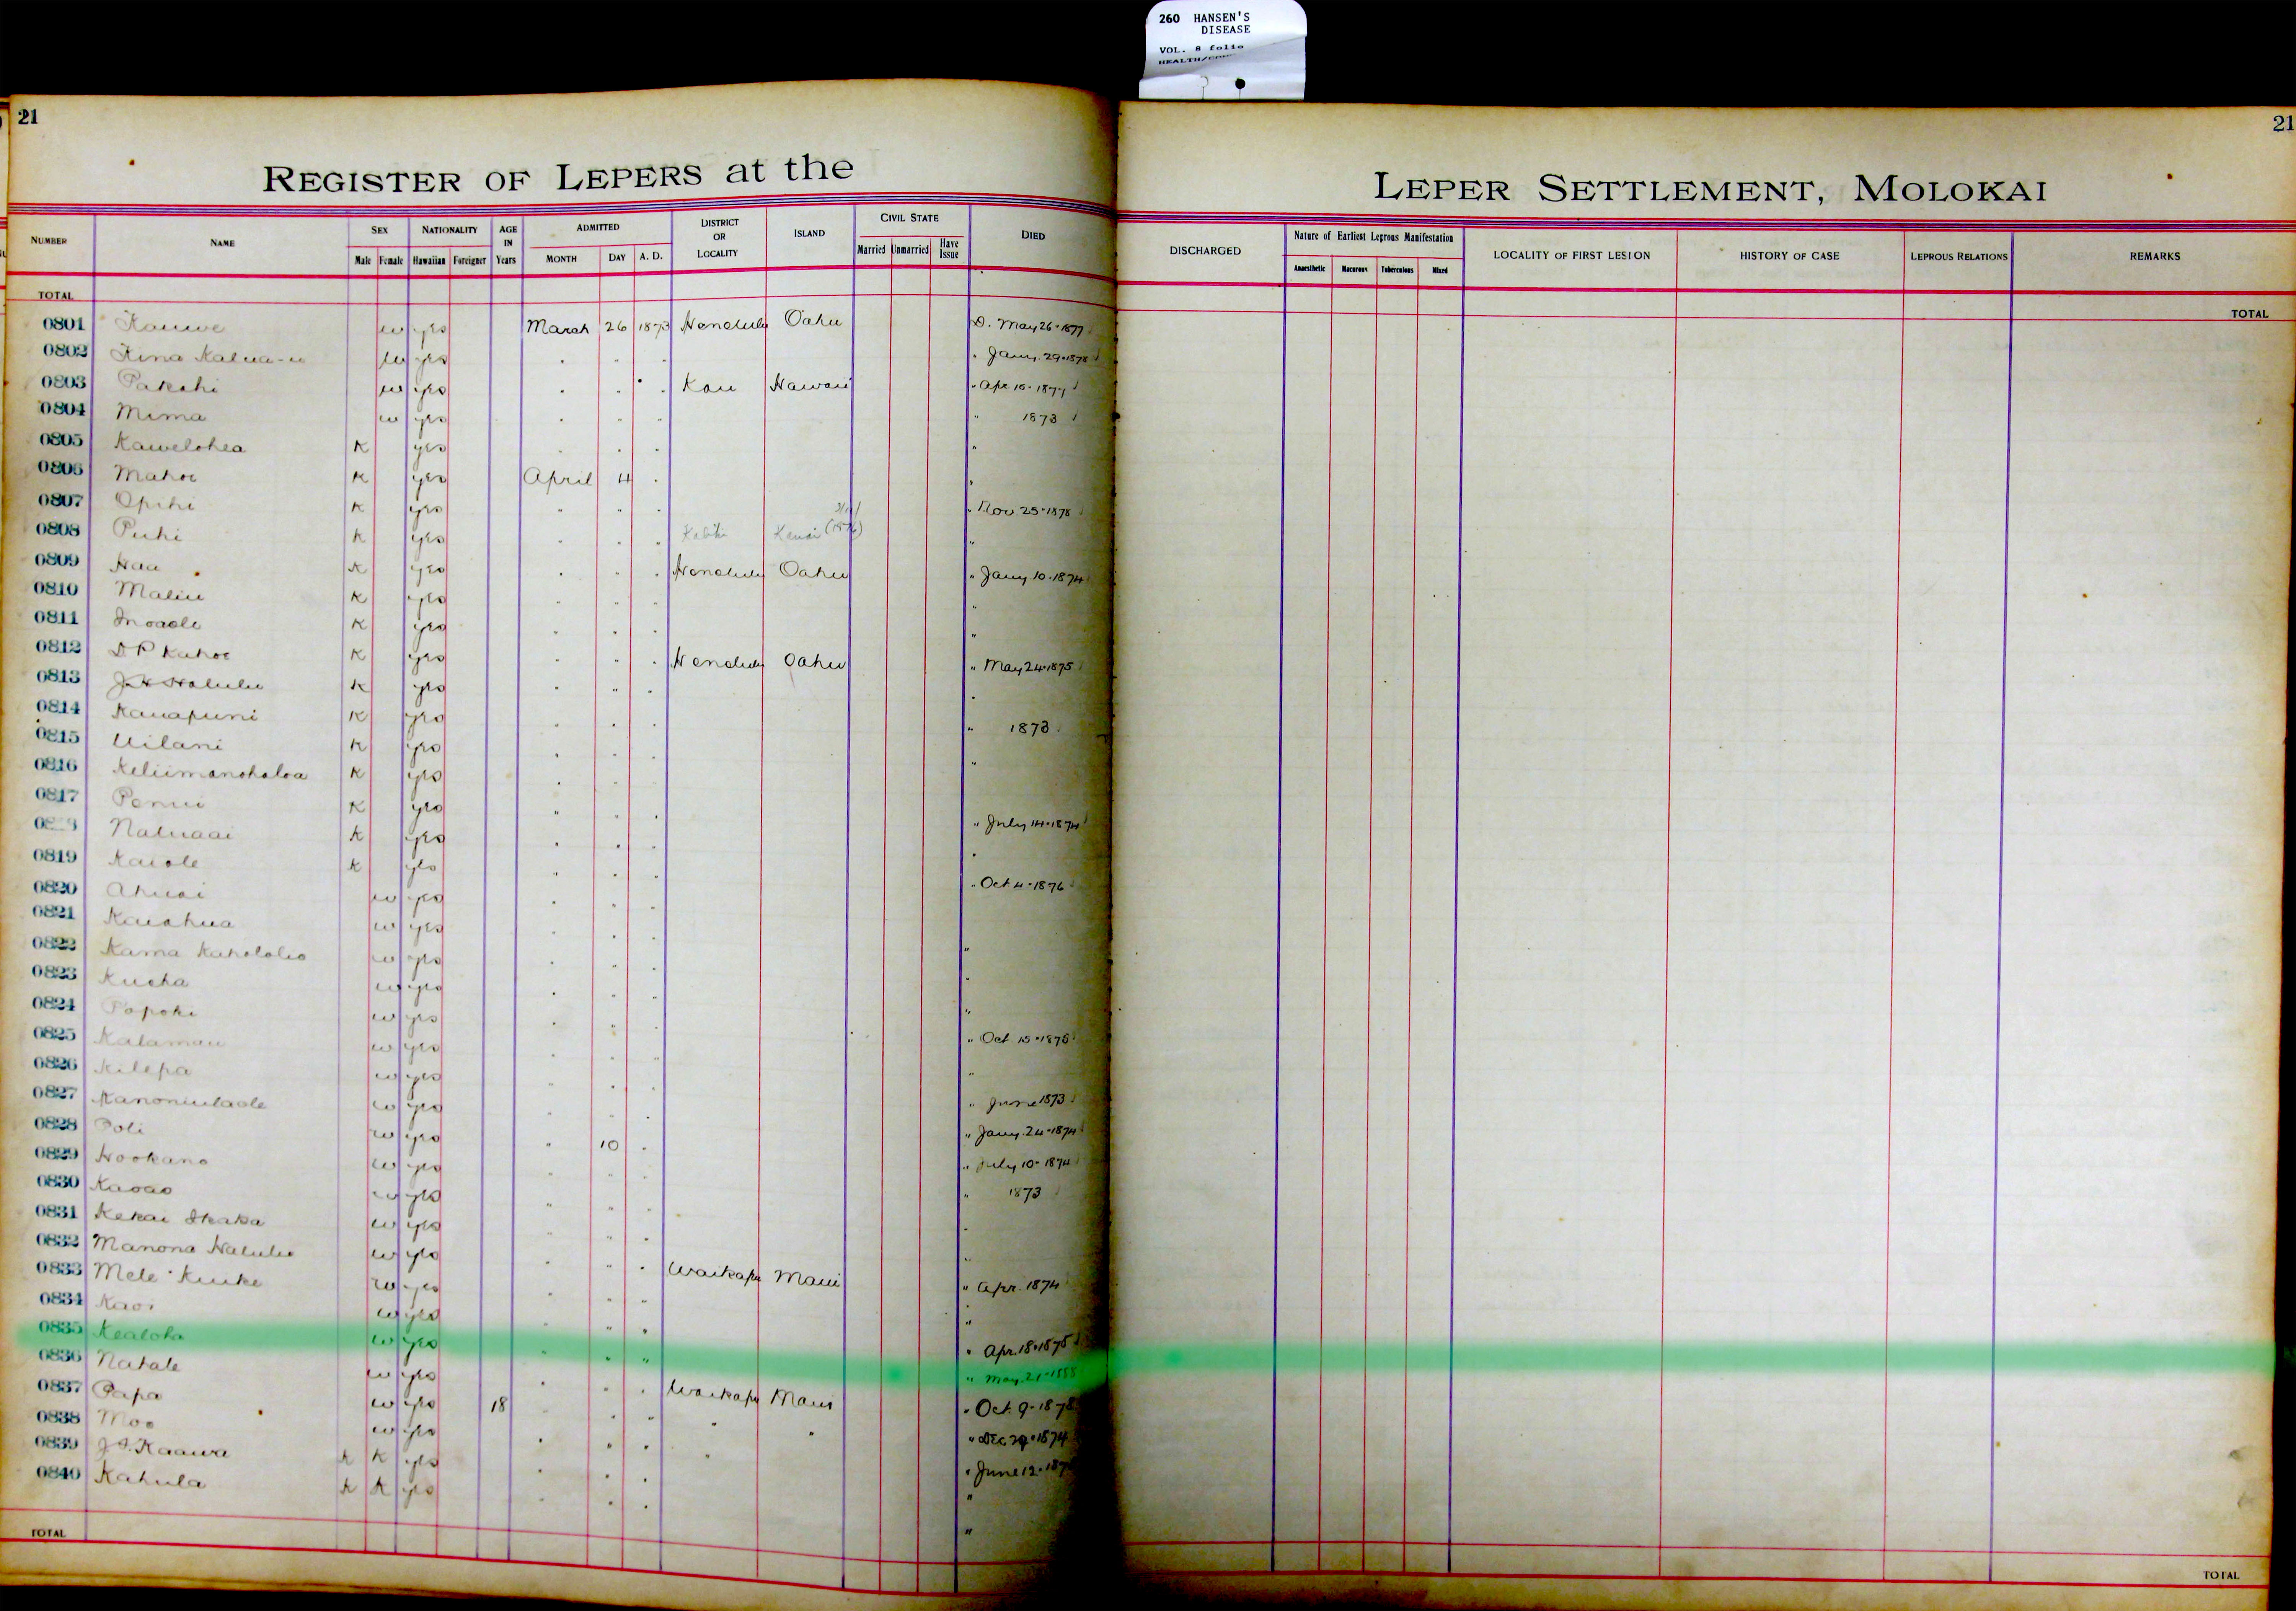 260 HANSEN'S
DISEASE
VOL. 8 folio
21
21
REGISTER OF LEPERS at the
LEPER SETTLEMENT, MOLOKAI
NUMBER NAME SEX Male Female NATIONALITY Hawaiian Foreigner AGE IN Years ADMITTED MONTH DAY A. D. DISTRICT OR LOCALITY ISLAND CIVIL STATE Married Unmarried Have Issue DIED
DISCHARGED Nature of Earliest Leprous Manifestation Anaesthetic Macurous Tuberculous Mixed LOCALITY OF FIRST LESION HISTORY OF CASE LEPROUS RELATIONS REMARKS
TOTAL
TOTAL
0801 Kauwe w yes March 26 1873 Honolulu Oahu D. May 26-1877
0802 w yes " Jany. 29-1878
0803 Pakahi w yes Kau Hawaii " Apr 16-1877
0804 Mima w yes " 1873
0805 Kawelohea K yes "
0806 Mahoe K yes April 4 "
0807 Opihi K yes " Nov 25-1878
0808 Puhi K yes Kauai "
0809 Hau K yes Honolulu Oahu " Jany 10-1874
0810 Maliu K yes "
0811 K yes "
0812 Kahoe K yes Honolulu Oahu " May 24-1875
0813 Halulu K yes "
0814 Kauapuni K yes " 1873
0815 Uilani K yes "
0816 Keliimanohaloa K yes
0817 K yes " July 14-1874
Naluaai K yes "
0819 Kaiole K yes " Oct 4-1876
0820 Ahuai w yes
0821 Kauahua w yes "
0822 Kama w yes "
0823 w yes "
0824 Popoki w yes " Oct 15-1875
0825 Kalamau w yes "
0826 Kilepa w yes " June 1873
0827 w yes " Jany. 24-1874
0828 Poli w yes 10 " July 10-1874
0829 Hookano w yes " 1873
0830 Kaoao w yes "
0831 Kekai w yes "
0832 Manona Halulu w yes Waikapu Maui " Apr. 1874
0833 Mele Kuike w yes "
0834 w yes "
0835 Kealoha w yes " Apr. 18-1875
0836 Natale w yes Waikapu Maui " May. 21-1888
0837 Papa w yes 18 " " " Oct. 9-1878
0838 Moo w yes " Dec 29-1874
0839 Kaawa K K yes " June 12
0840 Kahula K K yes "
TOTAL
TOTAL